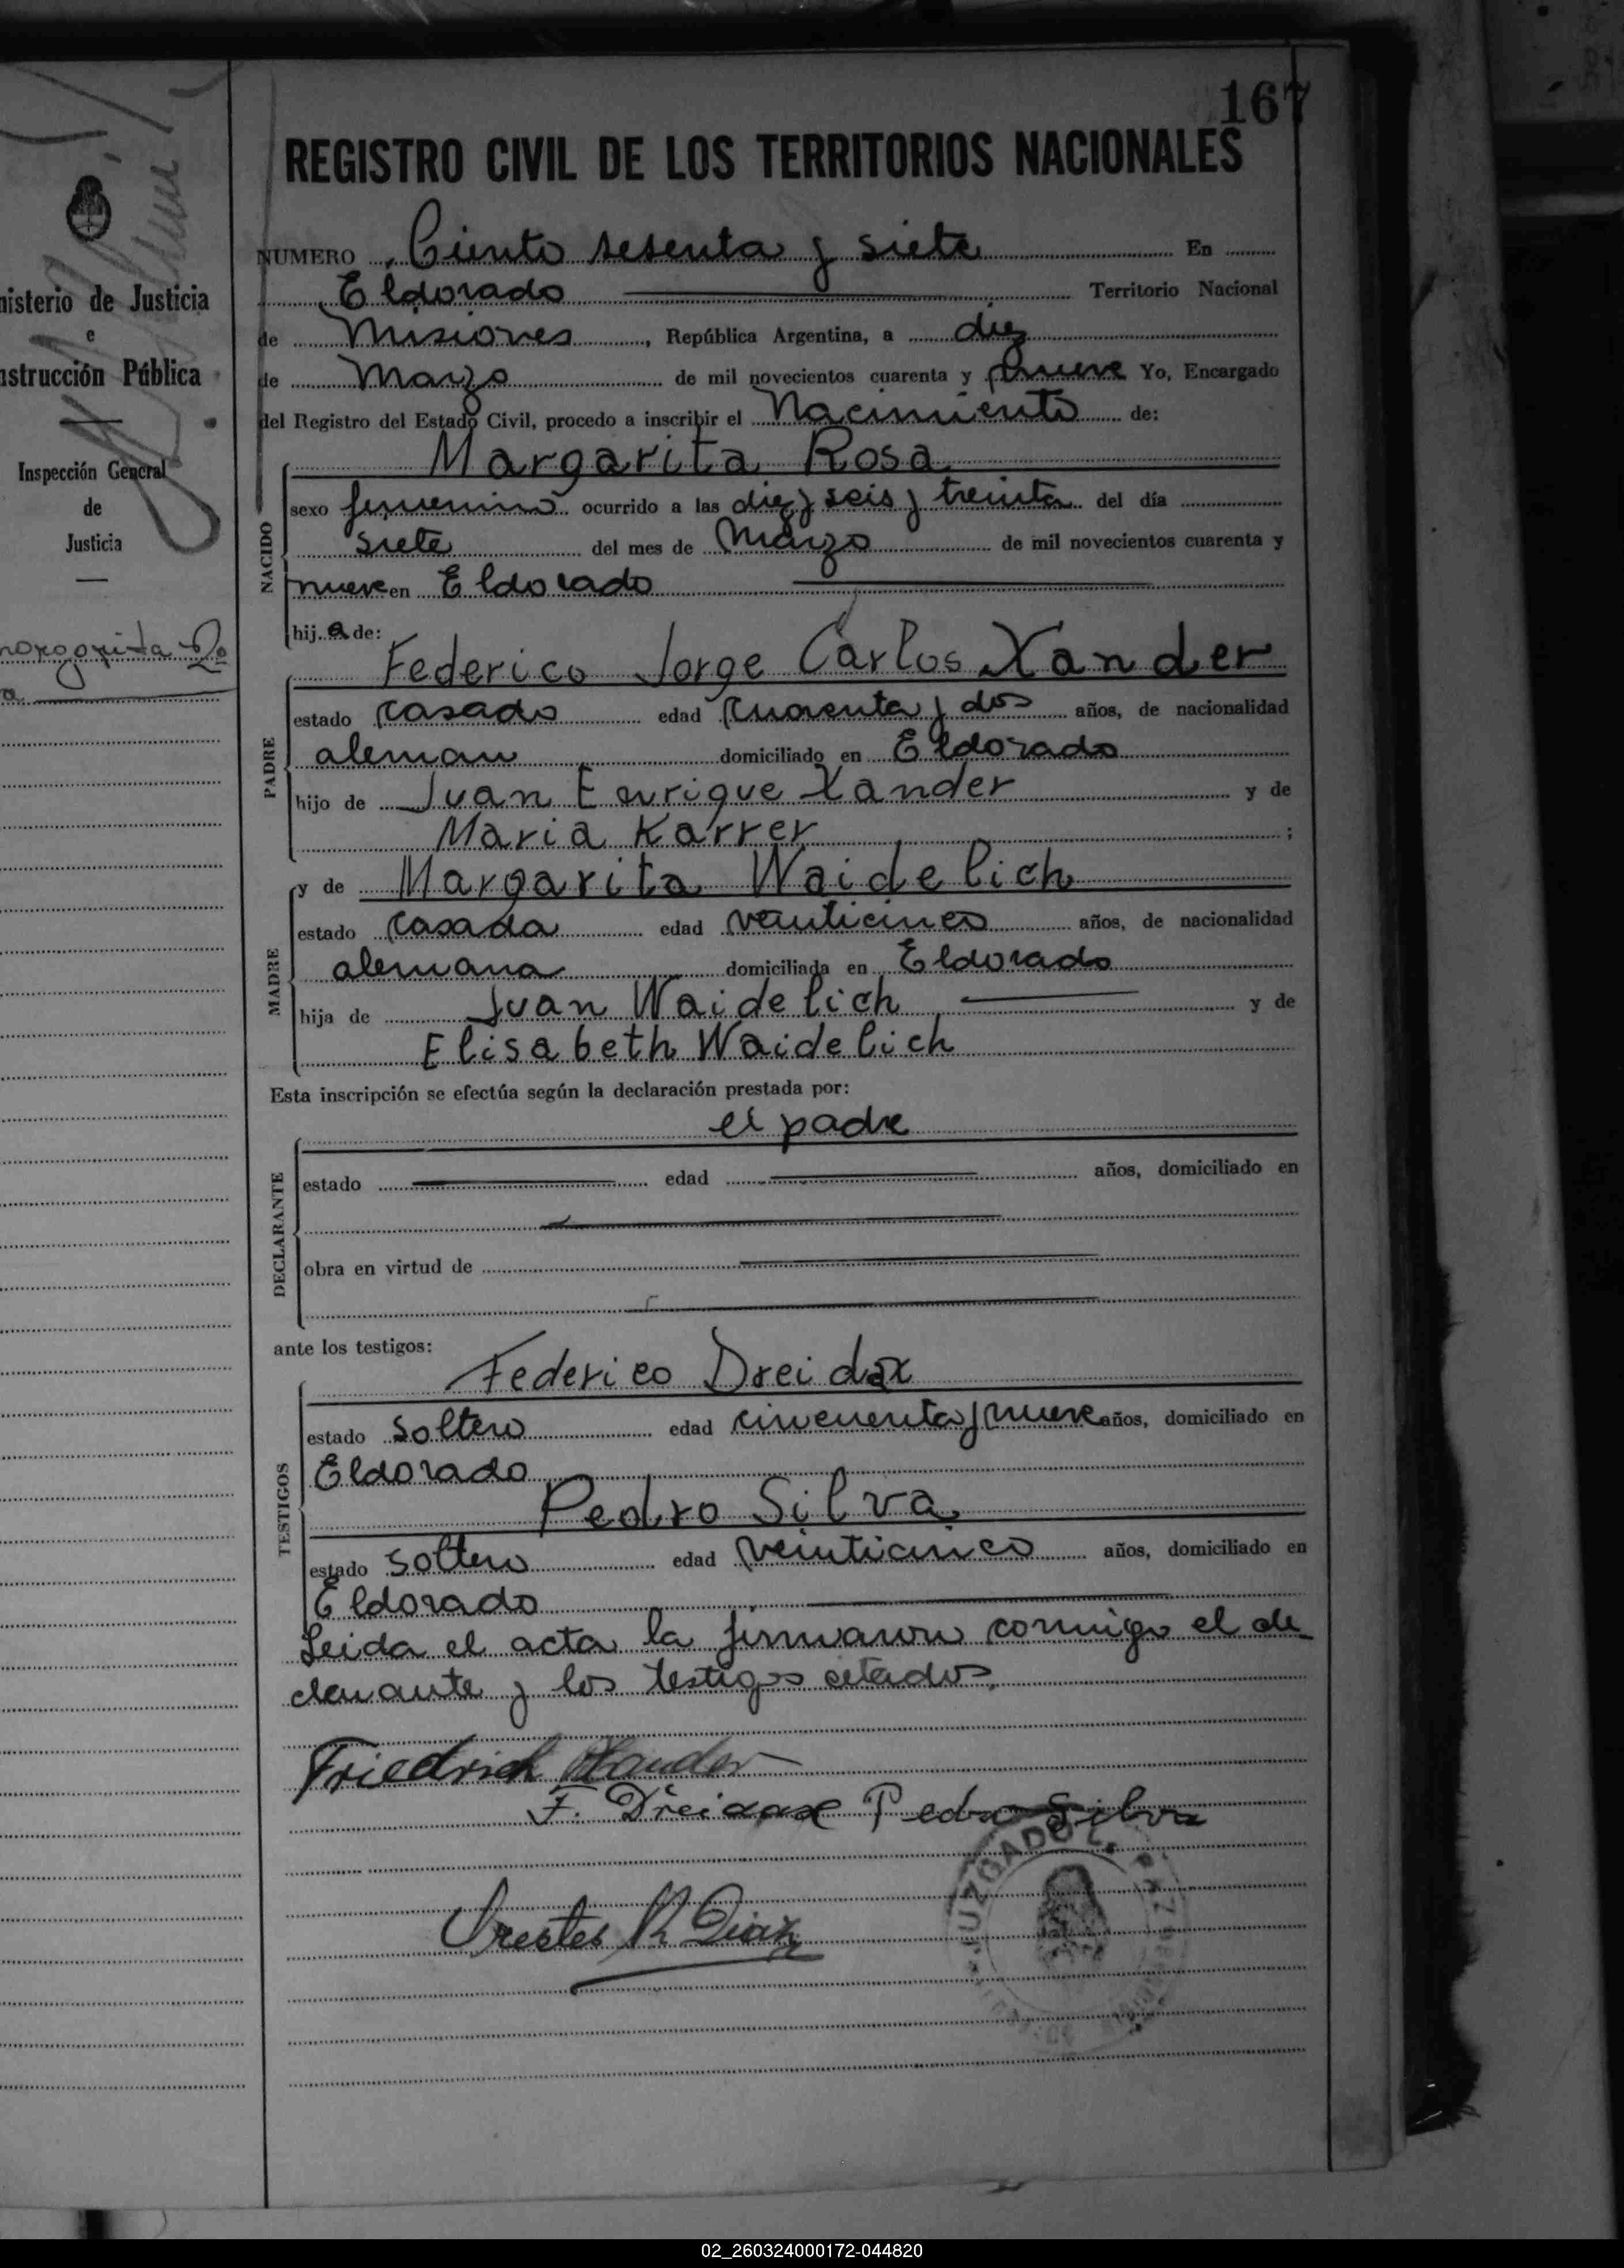 167
REGISTRO CIVIL DE LOS TERRITORIOS NACIONALES
nisterio de Justicia
e
nstrucción Pública
Inspección General
de
Justicia
margarita Ro
sa
NUMERO Ciento sesenta y siete En
Eldorado Territorio Nacional
de Misiones, República Argentina, a diez
de Marzo de mil novecientos cuarenta y nueve Yo, Encargado
del Registro del Estado Civil, procedo a inscribir el Nacimiento de:
NACIDO
Margarita Rosa
sexo femenino ocurrido a las diez y seis y treinta del día
siete del mes de Marzo de mil novecientos cuarenta y
nueve en Eldorado
hija de:
PADRE
Federico Jorge Carlos Xander
estado casado edad cuarenta y dos años, de nacionalidad
aleman domiciliado en Eldorado
hijo de Juan Enrique Xander y de
Maria Karrer ;
MADRE
y de Margarita Waidelich
estado casada edad veinticinco años, de nacionalidad
alemana domiciliada en Eldorado
hija de Juan Waidelich y de
Elisabeth Waidelich
Esta inscripción se efectúa según la declaración prestada por:
DECLARANTE
el padre
estado edad años, domiciliado en
obra en virtud de
ante los testigos:
TESTIGOS
Federico Dreidax
estado soltero edad cincuenta y nueve años, domiciliado en
Eldorado
Pedro Silva
estado soltero edad veinticinco años, domiciliado en
Eldorado
Leida el acta la firmaron conmigo el de
clarante y los testigos citados.
Friedrich Xander
F. Dreidax Pedro Silva
Orestes R Diaz
JUZGADO
02_260324000172-044820